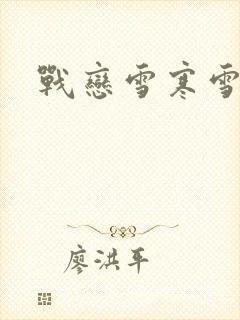 戰戀雪寒雪
廖洪平